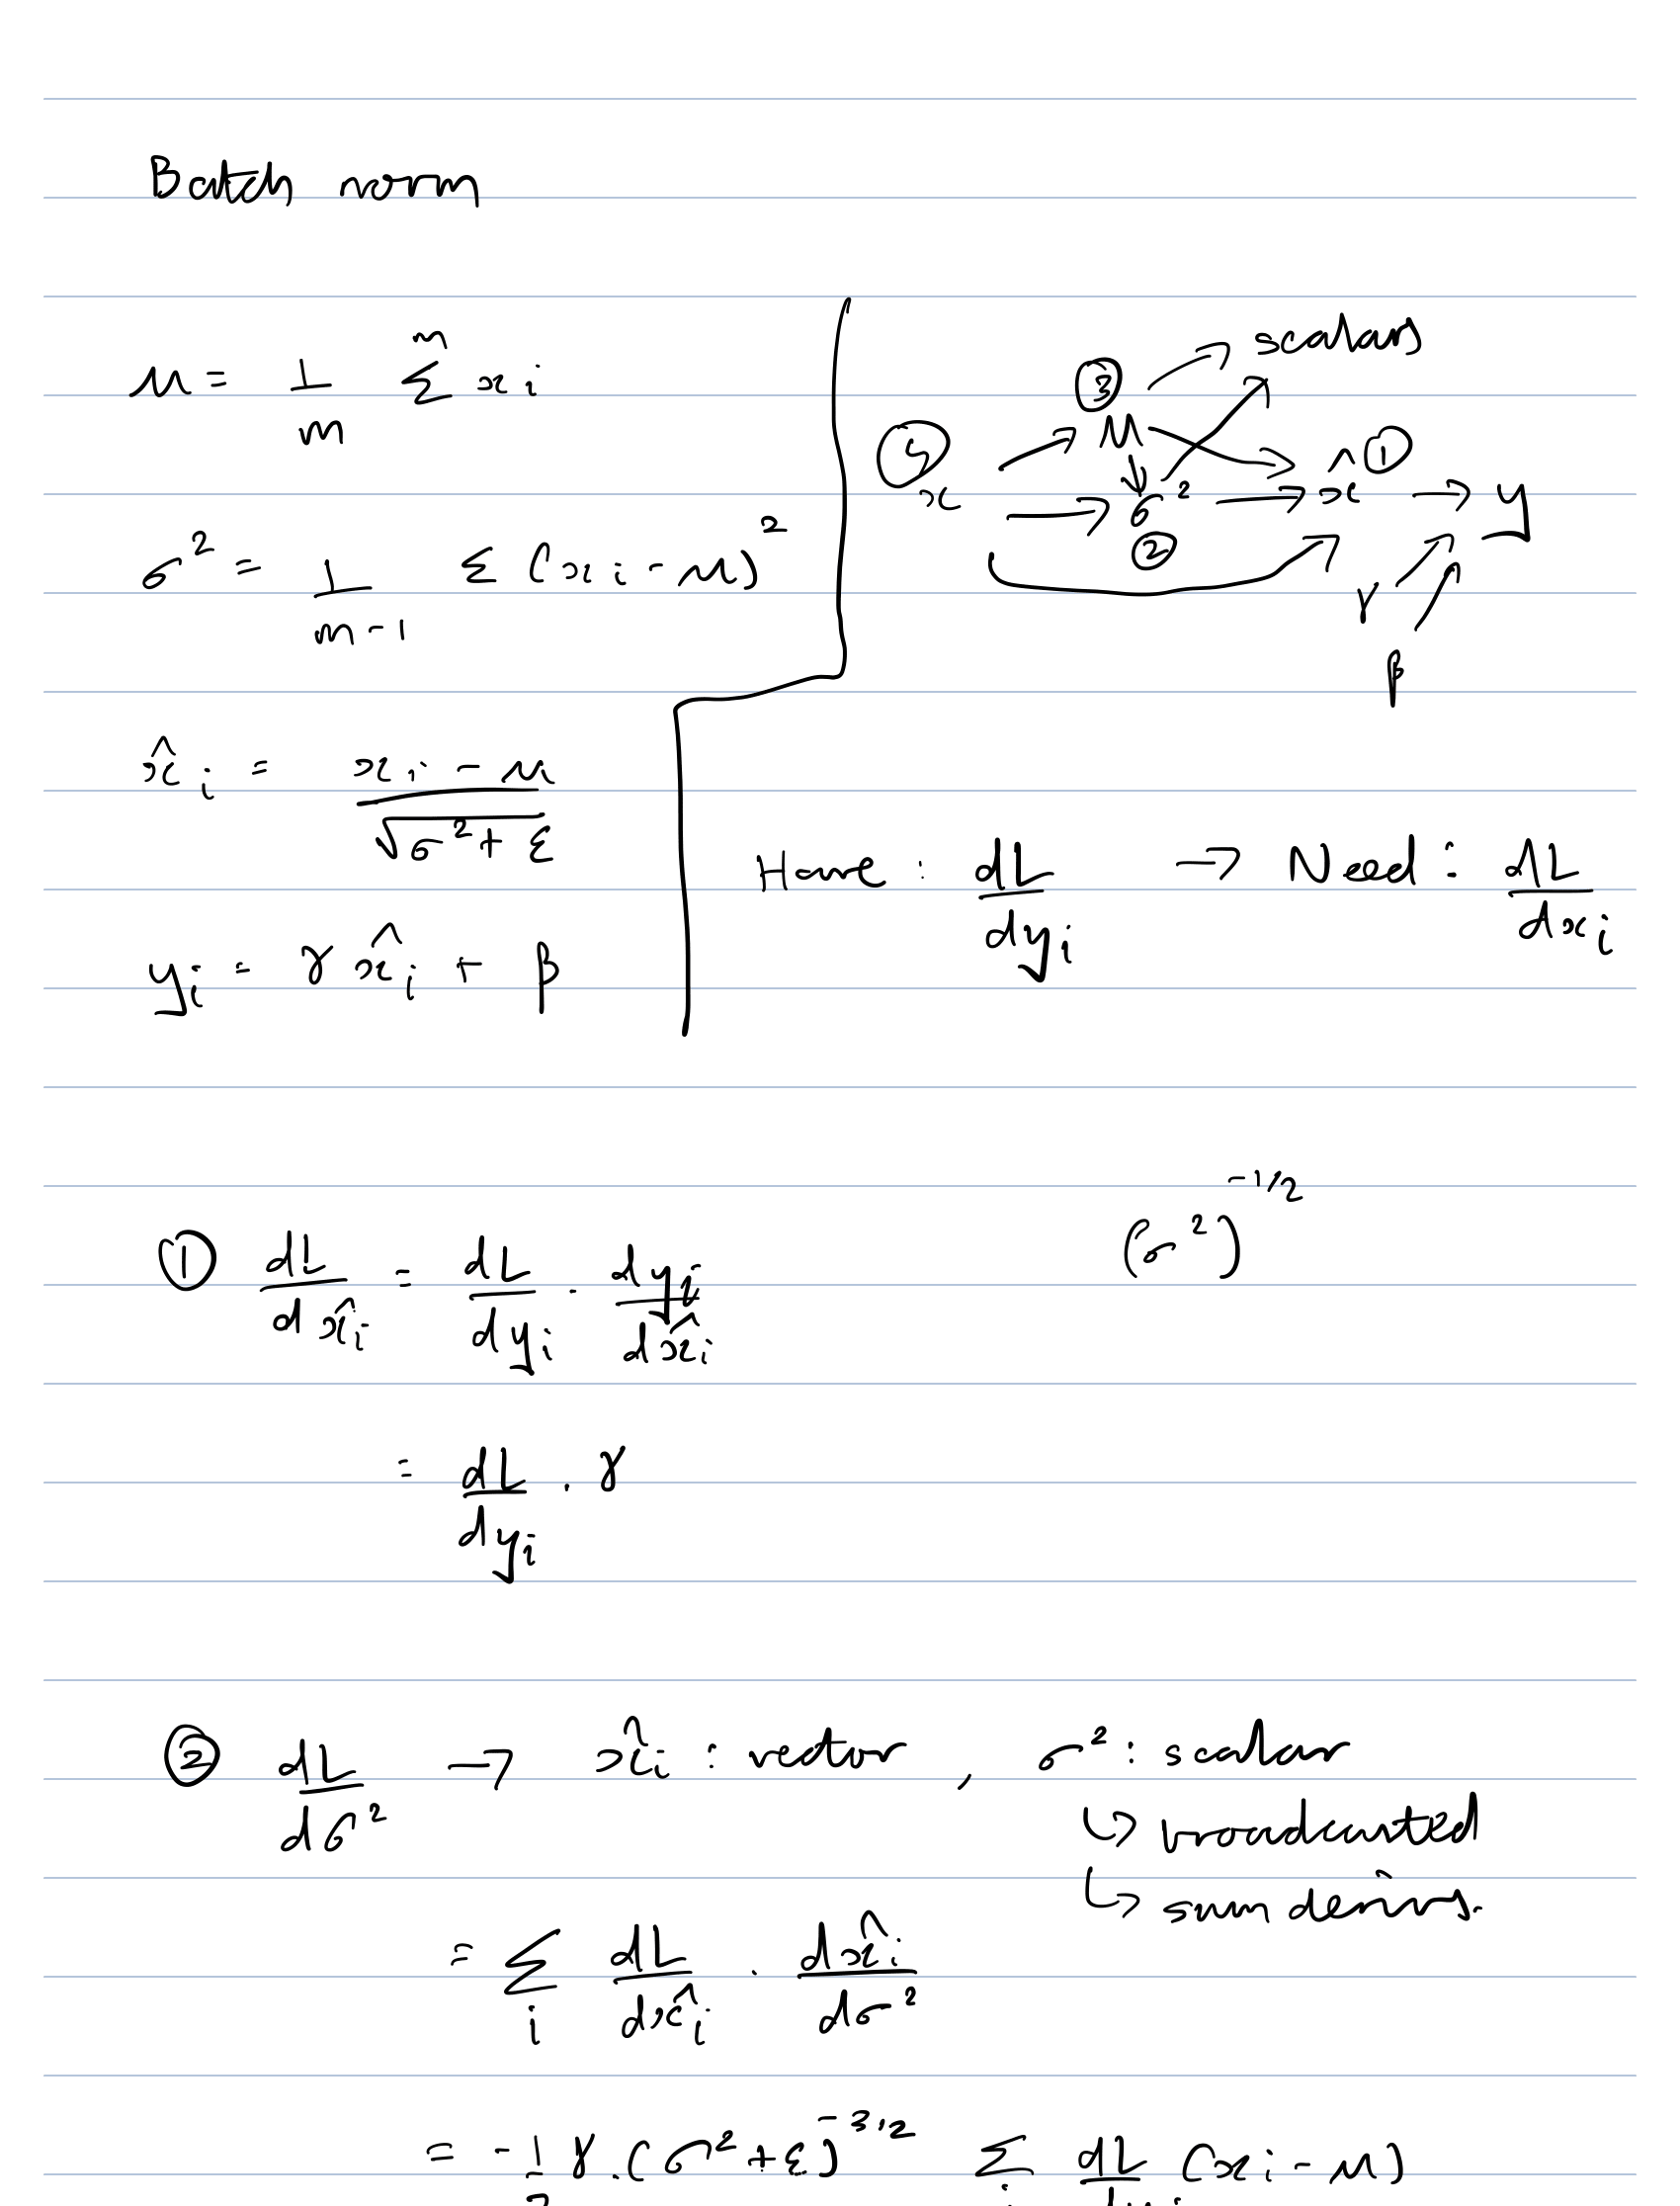 Batch norm
μ = 1/m Σ^m x_i
σ² = 1/(m-1) Σ (x_i - μ)²
x̂_i = (x_i - μ) / √(σ² + ε)
y_i = γ x̂_i + β
③ scalars
④ μ x̂ ①
x σ² y
②
γ
β
Have : dL/dy_i → Need : dL/dx_i
(σ²)^(-1/2)
① dL/dx̂_i = dL/dy_i · dy_i/dx̂_i
= dL/dy_i · γ
② dL/dσ² → x̂_i : vector , σ² : scalar
↳ broadcasted
↳ sum derivs.
= Σ_i dL/dx̂_i · dx̂_i/dσ²
= -1/2 γ · (σ² + ε)^(-3/2) Σ_i dL/dy_i (x_i - μ)